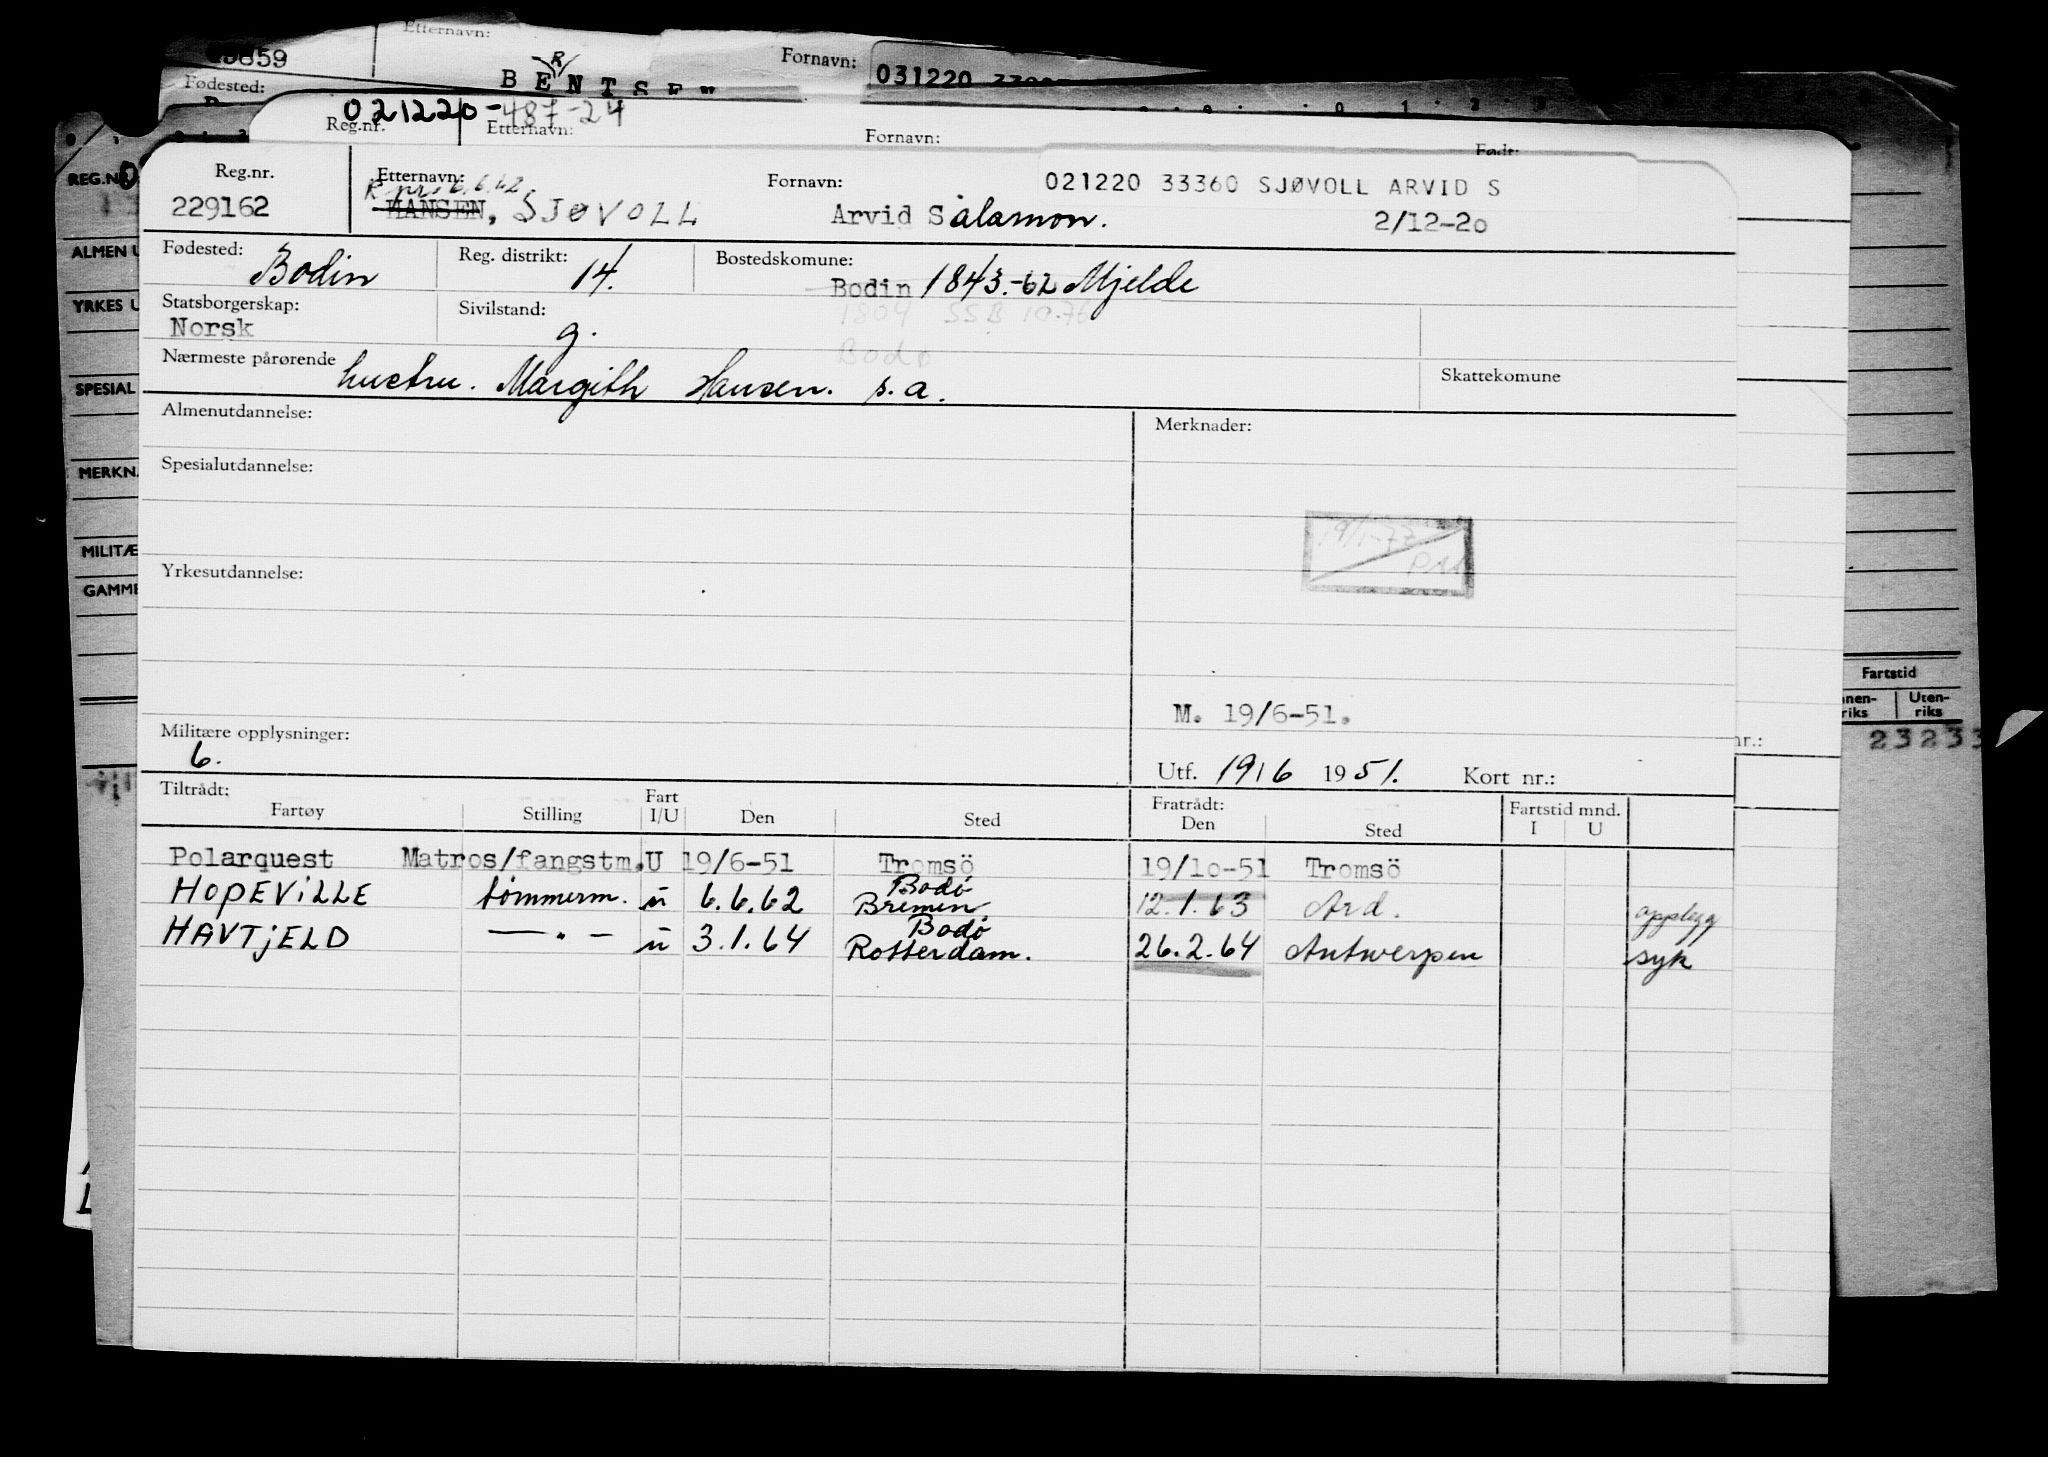 Etternavn:
Fornavn:
Fødested:
BENTSE
R
031220
021220-487-24
Reg.nr.
Etternavn:
Fornavn:
Født:
REG.N
ALMEN U
YRKES U
SPESIAL
MERKN
MILITÆ
GAMME
Fartstid
Uten-
riks
riks
nr.:
Reg.nr.
229162
Etternavn:
R pr. 6.6.62
HANSEN, SJØVOLL
Fornavn:
Arvid Salamon.
021220 33360 SJØVOLL ARVID S
2/12-20
Fødested: Bodin
Reg. distrikt: 14.
Bostedskomune: Bodin 1843.-62 Mjelde
1804 SSB 10.76
Bodø
Statsborgerskap: Norsk
Sivilstand: g.
Nærmeste pårørende hustru. Margith Hansen. s.a.
Skattekomune
Almenutdannelse:
Merknader:
Spesialutdannelse:
Yrkesutdannelse:
M. 19/6-51.
Militære opplysninger:
6.
Utf. 19/6 1951. Kort nr.:
Tiltrådt:
Fartøy Stilling Fart I/U Den Sted
Fratrådt:
Den Sted Fartstid mnd. I U
Polarquest Matros/fangstm. U 19/6-51 Tromsö 19/10-51 Tromsö
HOPEVILLE tømmerm. u 6.6.62 Bodø Bremen 12.1.63 Ard. opplegg
HAVTJELD —"— u 3.1.64 Bodø Rotterdam. 26.2.64 Antwerpen syk